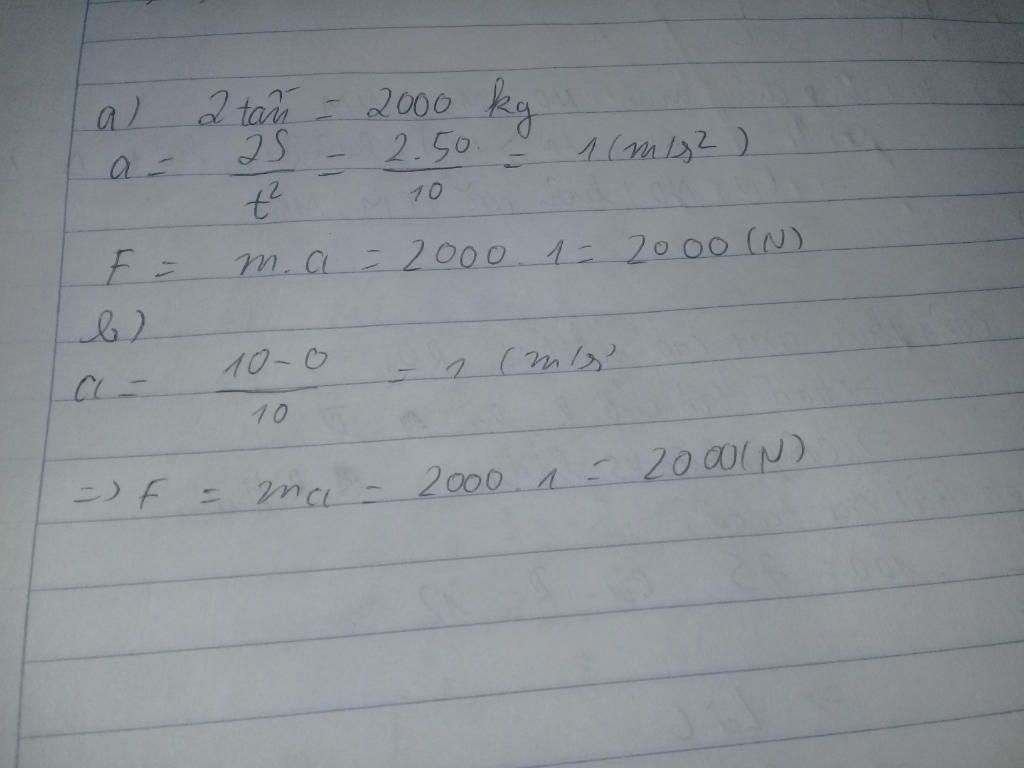 a) 2 tấn = 2000 kg
a = 2S/t² = 2.50/10 = 1 (m/s²)
F = m.a = 2000.1 = 2000 (N)
b)
a = 10-0/10 = 1 (m/s²
=> F = ma = 2000.1 = 2000 (N)